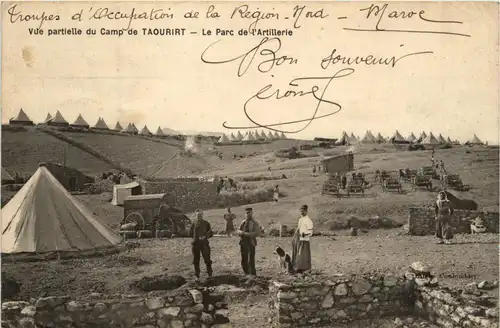 Troupes d'Occupation de la Région-Nord - Maroc -
Vue partielle du Camp de TAOURIRT - Le Parc de l'Artillerie
Bon souvenir
Jérôme